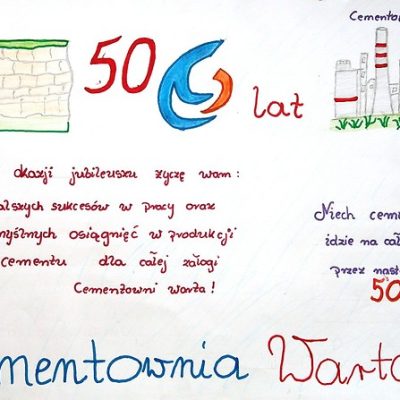 Cementow
50 lat
okazji jubileuszu życzę wam:
alszych sukcesów w pracy oraz
myślnych osiągnięć w produkcji
cementu dla całej załogi
Cementowni Warta!
Niech cem
idzie na cał
przez nast
50
mentownia Warta